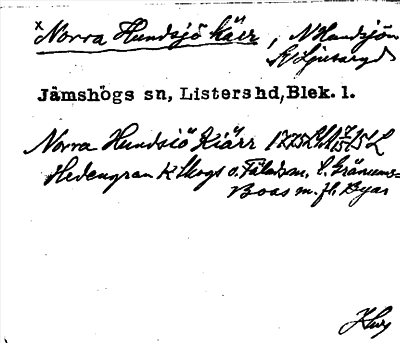 x Norra Hundsjö kärr, N Hundsjön
Ljusaryd
Jämshögs sn, Listers hd, Blek. l.
Norra Hundsiö Kiärr 1775
Hedengran K Skogs o. Fälads m. t. Gränums=
Boas m. fl. Byar